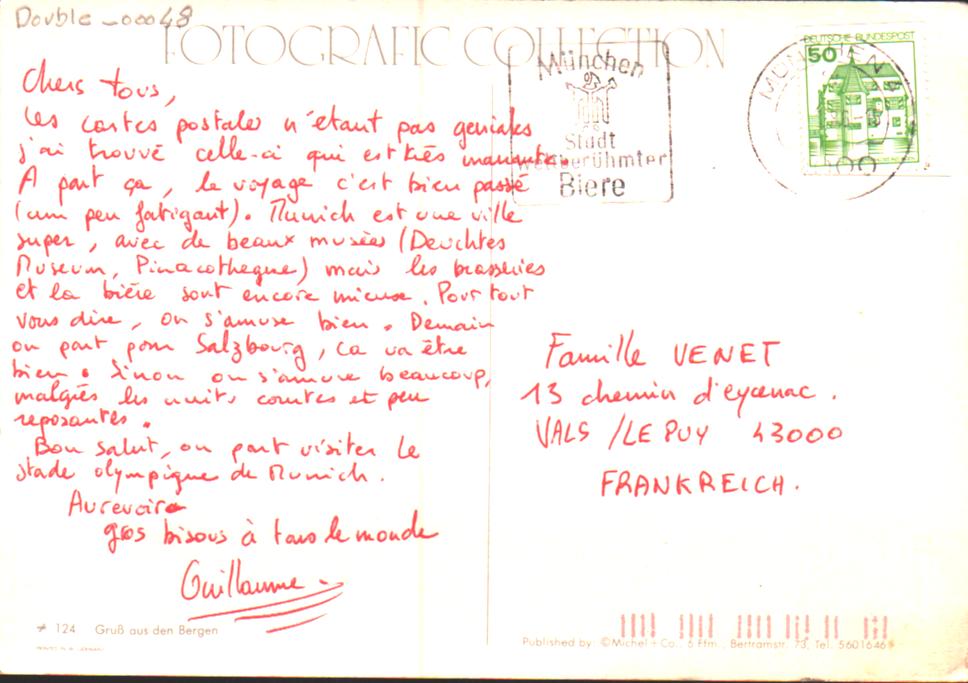 Double _00048
FOTOGRAFIC COLLECTION
Chers tous,
Les cartes postales n'étant pas geniales
j'ai trouvé celle-ci qui est très marrante.
A part ça, le voyage c'est bien passé
(um peu fatigant). Munich est une ville
super, avec de beaux musées (Deuchtes
Museum, Pinacotheque) mais les brasseries
et la bière sont encore mieuse. Pour tout
vous dire, on s'amuse bien. Demain
on part pour Salzbourg, ca va être
bien. Sinon on s'amuse beaucoup,
malgrés les nuits courtes et peu
reposantes.
Bon salut, on part visiter le
stade olympique de Munich.
Aurevoir
gros bisous à tous le monde
Guillaume
124 Gruß aus den Bergen
München
Stadt
weltberühmter
Biere
DEUTSCHE BUNDESPOST
50
MÜNCHEN
Famille VENET
13 chemin d'eycenac.
VALS /LE PUY 43000
FRANKREICH.
Published by: ©Michel + Co., 6 Ffm., Bertramstr. 73, Tel. 5601646